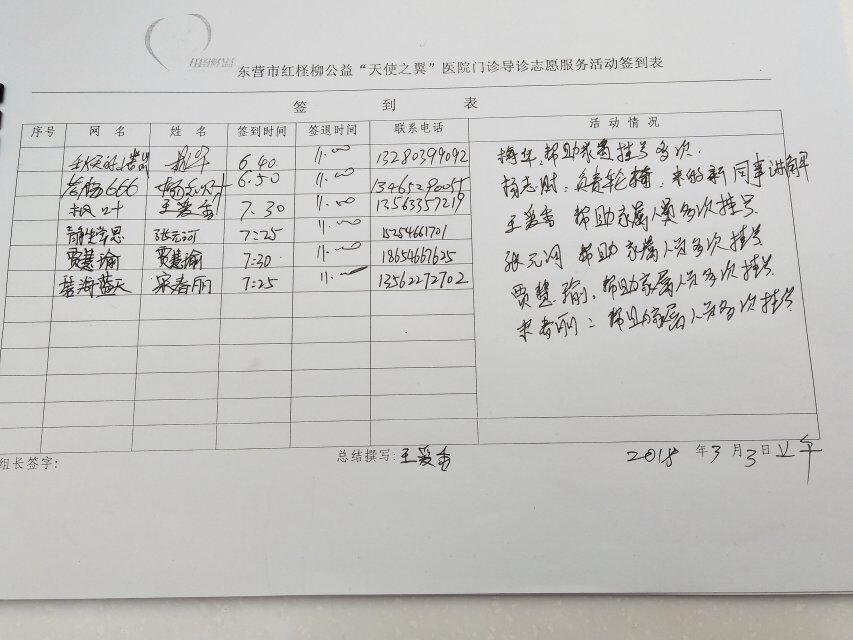 东营市红柽柳公益“天使之翼”医院门诊导诊志愿服务活动签到表
签 到 表
序号 网 名 姓 名 签到时间 签退时间 联系电话 活 动 情 况
6.40 11.00 13280399092
666 6.50 11.00 13465290055
枫叶 王爱香 7.30 11.00 13563357219
静坐常思 张元河 7:25 11.00 15254661701
贾慧瑜 贾慧瑜 7:30 11.00 18654667625
碧海蓝天 宋春丽 7:25 11.00 13562272702
梅华,帮助家属挂号多次.
杨志财,负责轮椅,来的新同事讲解
王爱香 帮助家属人员多次挂号
张元河 帮助家属人员多次挂号
贾慧瑜,帮助家属人员多次挂号
宋春丽:帮助家属人员多次挂号
组长签字: 总结撰写:王爱香 2018 年3月3日上午